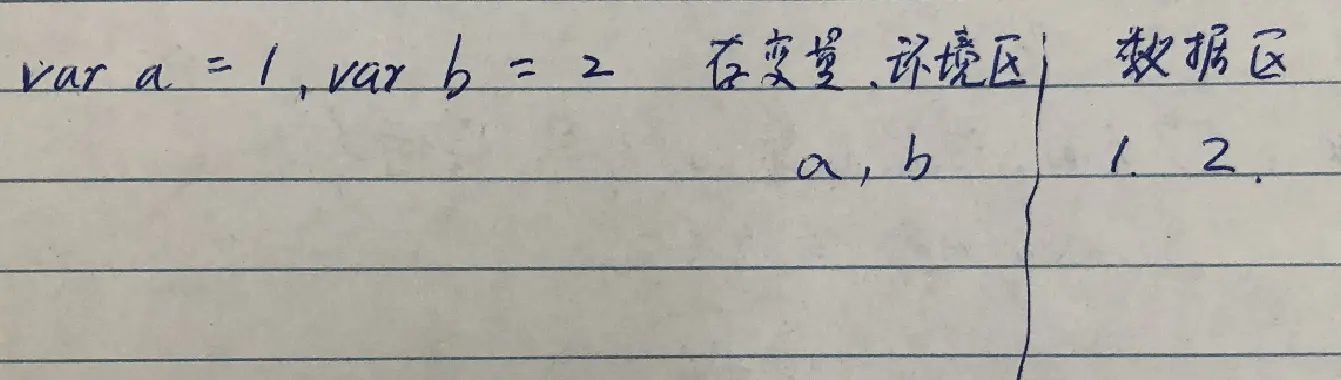 var a = 1, var b = 2 存变量、环境区 数据区
a, b 1. 2.